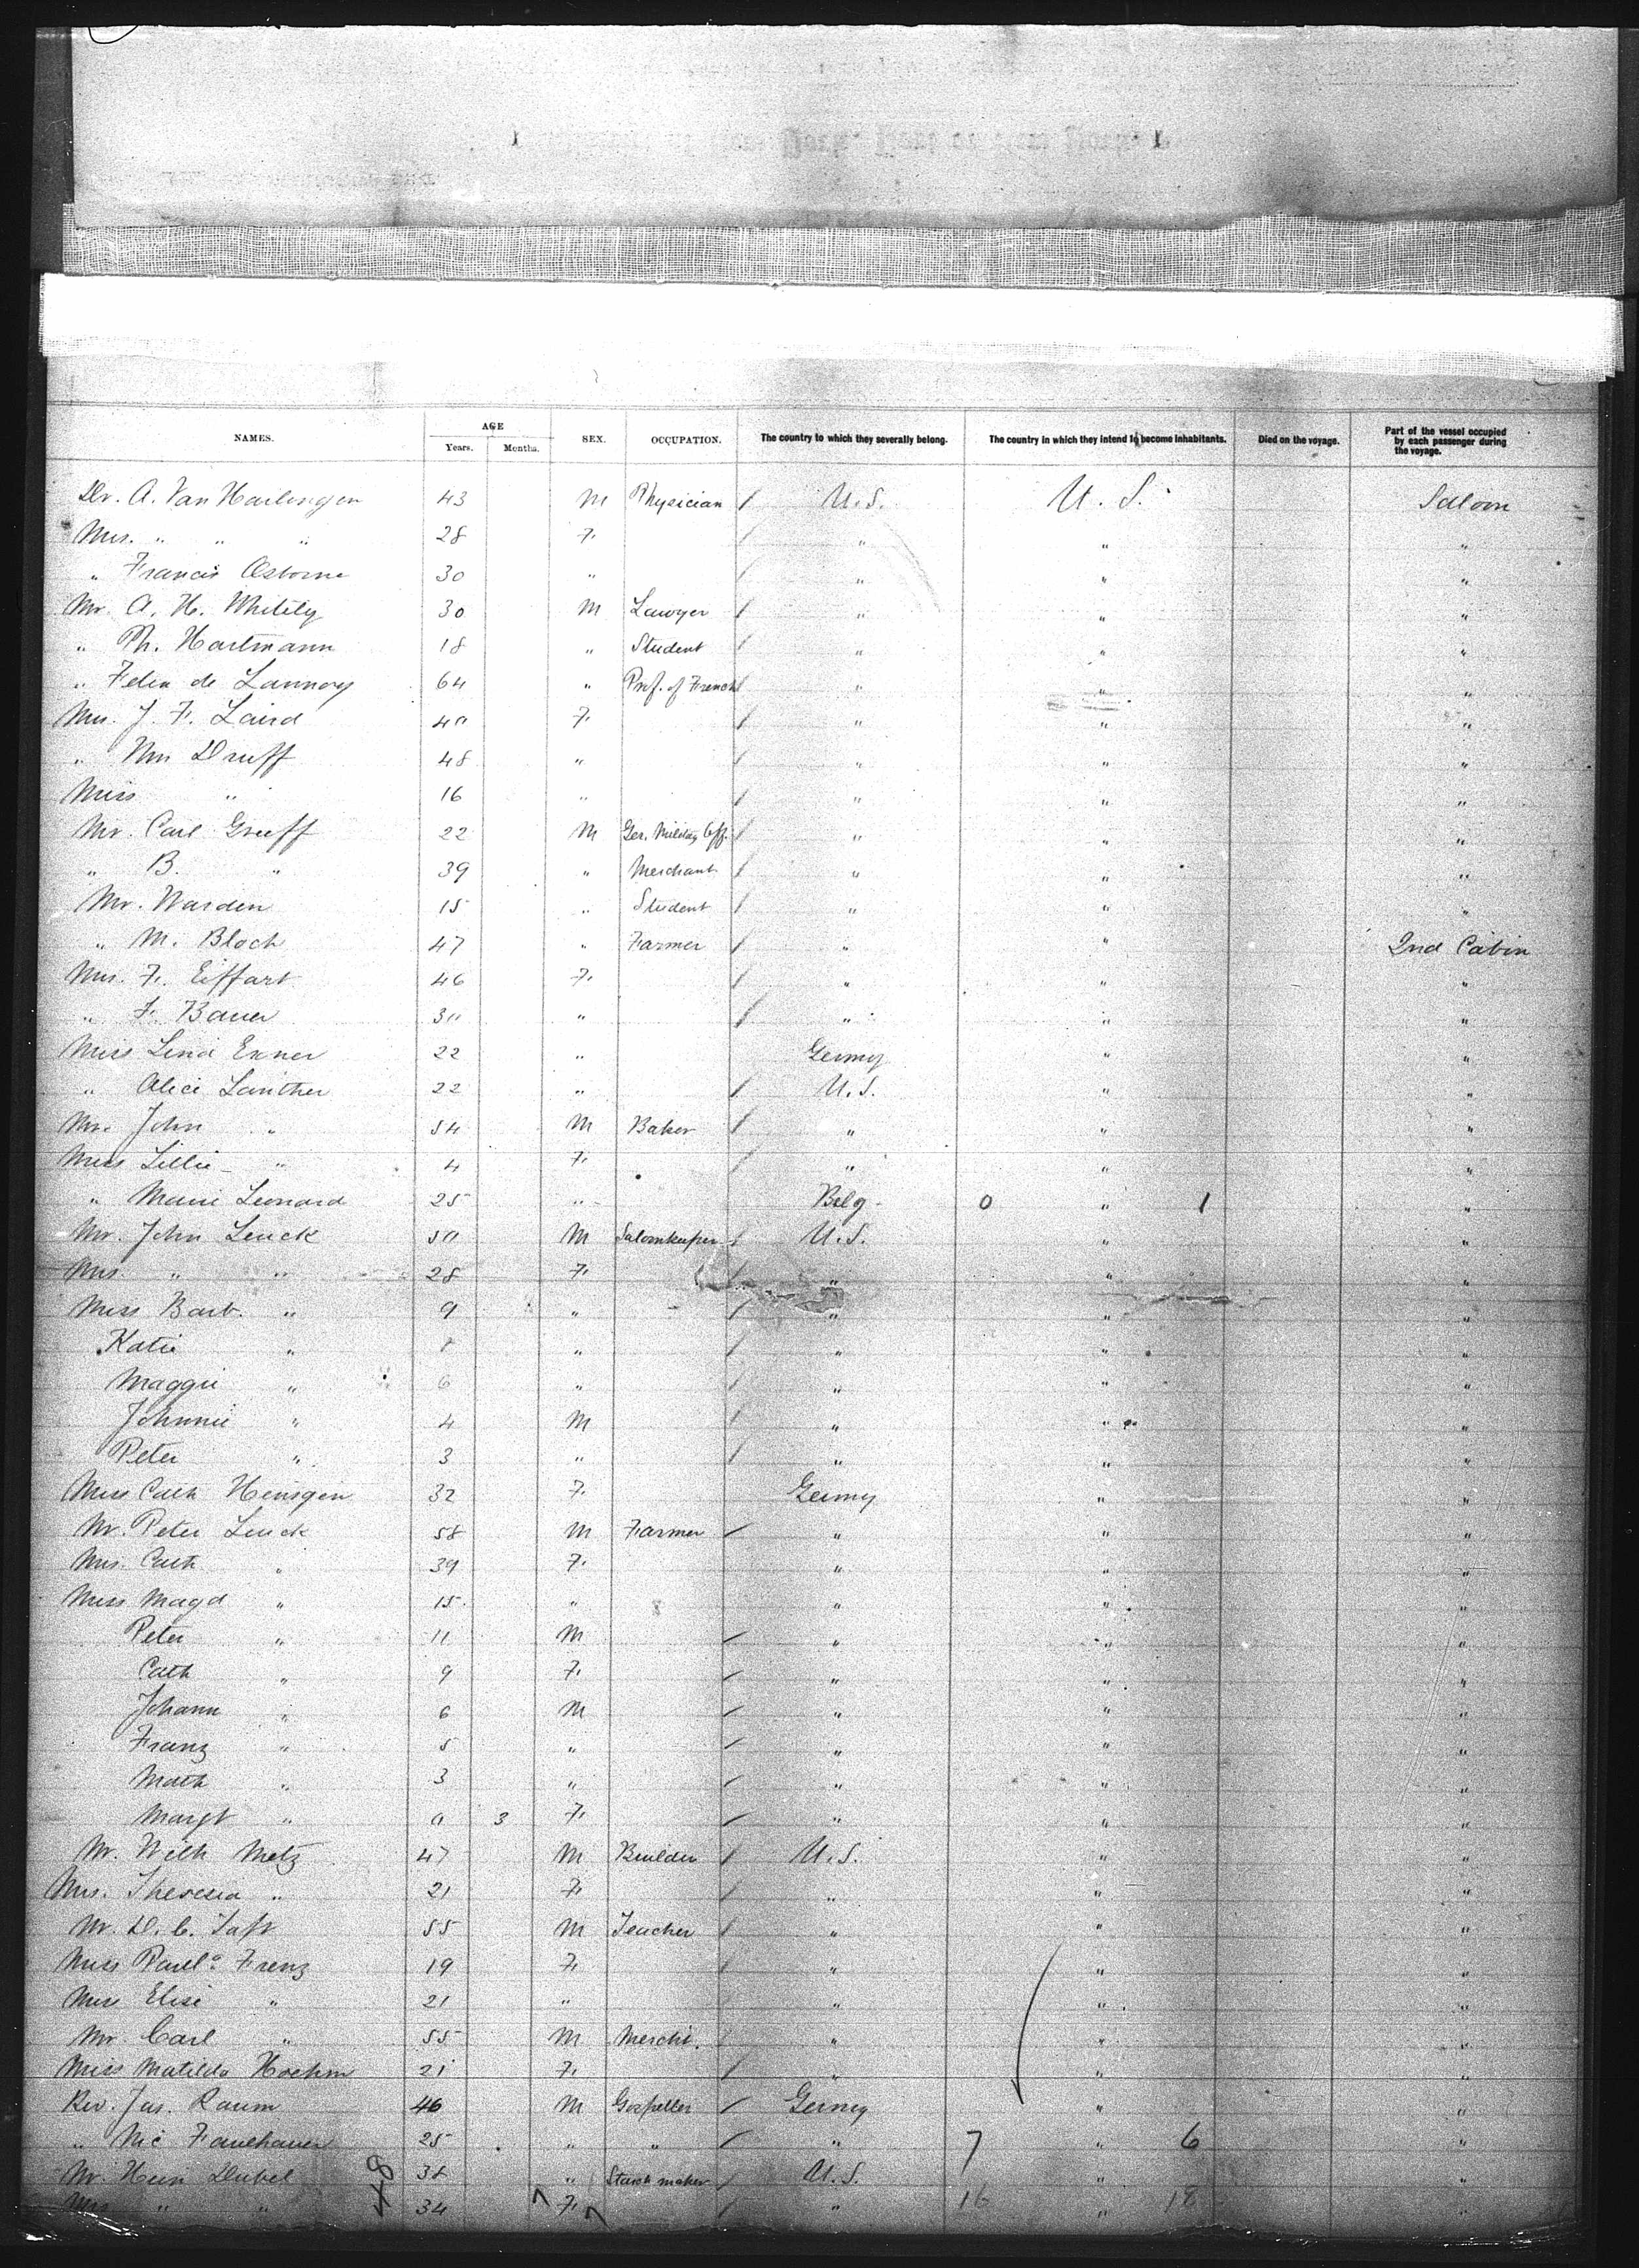 NAMES. AGE Years. Months. SEX. OCCUPATION. The country to which they severally belong. The country in which they intend to become inhabitants. Died on the voyage. Part of the vessel occupied by each passenger during the voyage.
Dr. A. Van Harlingen 43 M Physician / U.S. U.S. Saloon
Mrs. " " " 28 F. / " " "
" Francis Osborne 30 " / " " "
Mr. A. H. Whitely 30 M Lawyer / " " "
" Ph. Hartmann 18 " Student / " " "
" Felix de Lannoy 64 " Prof. of French / " " "
Mrs. J. F. Laird 40 F. / " " "
" Wm Druff 48 " / " " "
Miss " 16 " / " " "
Mr. Carl Greeff 22 M Ger. Military Off. / " " "
" B. " 39 " Merchant / " " "
Mr. Warden 15 " Student / " " "
" M. Bloch 47 " Farmer / " " 2nd Cabin
Mrs. F. Eiffart 46 F. / " " "
" F. Bauer 30 " / " " "
Miss Lina Exner 22 " Germy " "
" Alice Lanther 22 " / U.S. " "
Mr. John " 54 M Baker / " " "
Miss Lillie " 4 F. / " " "
" Marie Leonard 25 " Belg 0 " 1 "
Mr. John Leuck 50 M Saloonkeeper / U.S. " "
Mrs. " " 28 F. / " " "
Miss Barb. " 9 " / " " "
Katie " " / " " "
Maggie " 6 " / " " "
Johnnie " 4 M / " " "
Peter " 3 " / " " "
Miss Cath Hensgen 32 F. Germy " "
Mr. Peter Leuck 58 M Farmer / " " "
Mrs. Cath " 39 F. " " "
Miss Magd " 15 " " " "
Peter " 11 M / " " "
Cath " 9 F. / " " "
Johann " 6 M / " " "
Franz " 5 " / " " "
Math " 3 " / " " "
Margt " 0 3 F. / " " "
Mr. Wilh Metz 47 M Builder / U.S. " "
Mrs. Theresia " 21 F. / " " "
Mr. D. C. Taft 55 M Teacher / " " "
Miss Paula Frenz 19 F. / " " "
Miss Elise " 21 " " " "
Mr. Carl " 55 M Mercht. / " " "
Miss Matilda Hoehm 21 F. / " " "
Rev. Jas. Raum 46 M Gospeller / Germy " "
" Nic Faulhauer 25 " " / " 7 " 6 "
Mr. Hein Dubel 38 " Starch maker / U.S. " "
48
Mrs " " 34 7 F. 7 / " 16 " 18 "